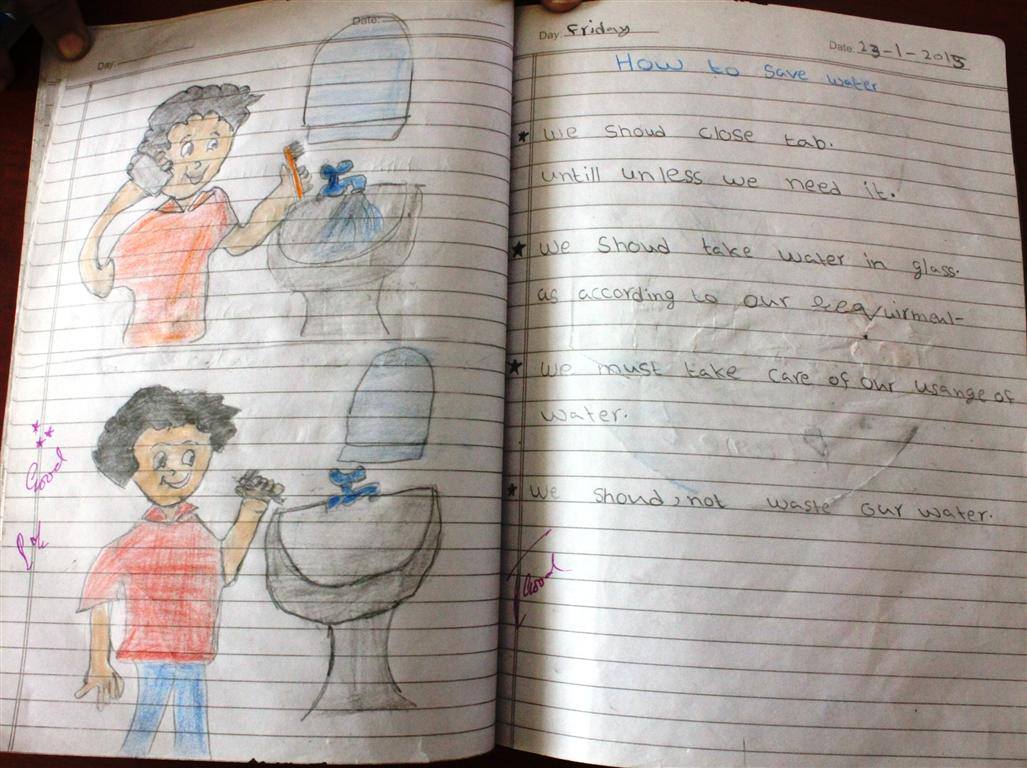 Day:
Date:
Good
Day: Friday
Date: 23-1-2015
How to save water
★ We shoud close tab.
untill unless we need it.
★ We shoud take water in glass.
as according to our reequirment-
★ We must take care of our usange of
water.
★ We shoud, not waste our water.
Good